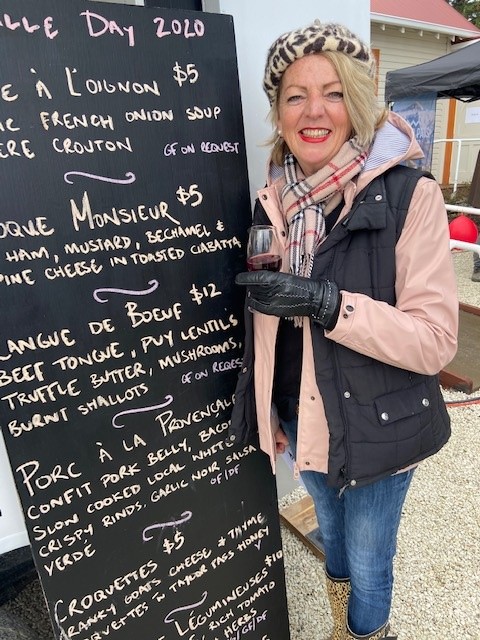 DAY 2020
À L'OIGNON $5
FRENCH ONION SOUP
CROUTON GF ON REQUEST
MONSIEUR $5
HAM, MUSTARD, BECHAMEL &
CHEESE IN TOASTED CIABATTA
LANGUE DE BOEUF $12
BEEF TONGUE, PUY LENTILS
TRUFFLE BUTTER, MUSHROOMS,
BURNT SHALLOTS
PORC À LA PROVENCALE
CONFIT PORK BELLY,
SLOW COOKED LOCAL WHITE
CRISPY RINDS, GARLIC NOIR SALSA
VERDÉ GF/DF
CROQUETTES $5
GOATS CHEESE & THYME
IN TAYLOR PASS HONEY V
LÉGUMINEUSES $10
RICH TOMATO
HERBS
GF/DF